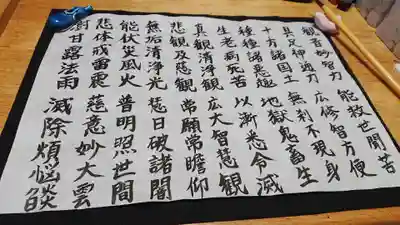 観音妙智力 能救世間苦
具足神通力 広修智方便
十方諸国土 無刹不現身
種種諸悪趣 地獄鬼畜生
生老病死苦 以漸悉令滅
真観清浄観 広大智慧観
悲観及慈観 常願常瞻仰
無垢清浄光 慧日破諸闇
能伏災風火 普明照世間
悲体戒雷震 慈意妙大雲
澍甘露法雨 滅除煩悩焔